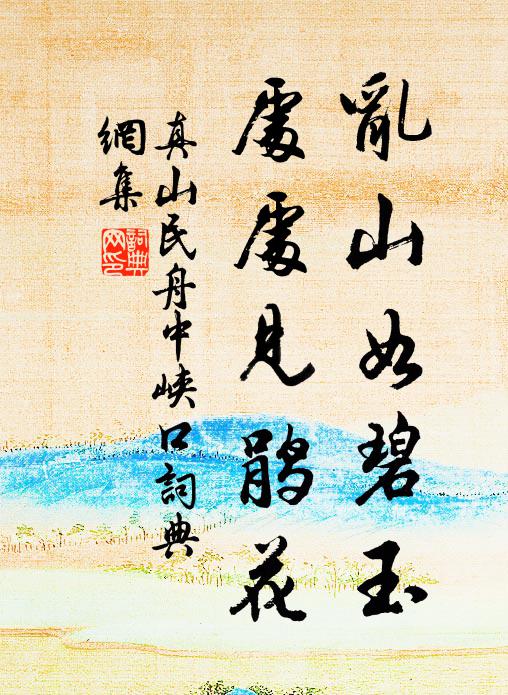 亂山如碧玉
處處見鵑花
真山民舟中峽口詞典
網集
詞典
網印